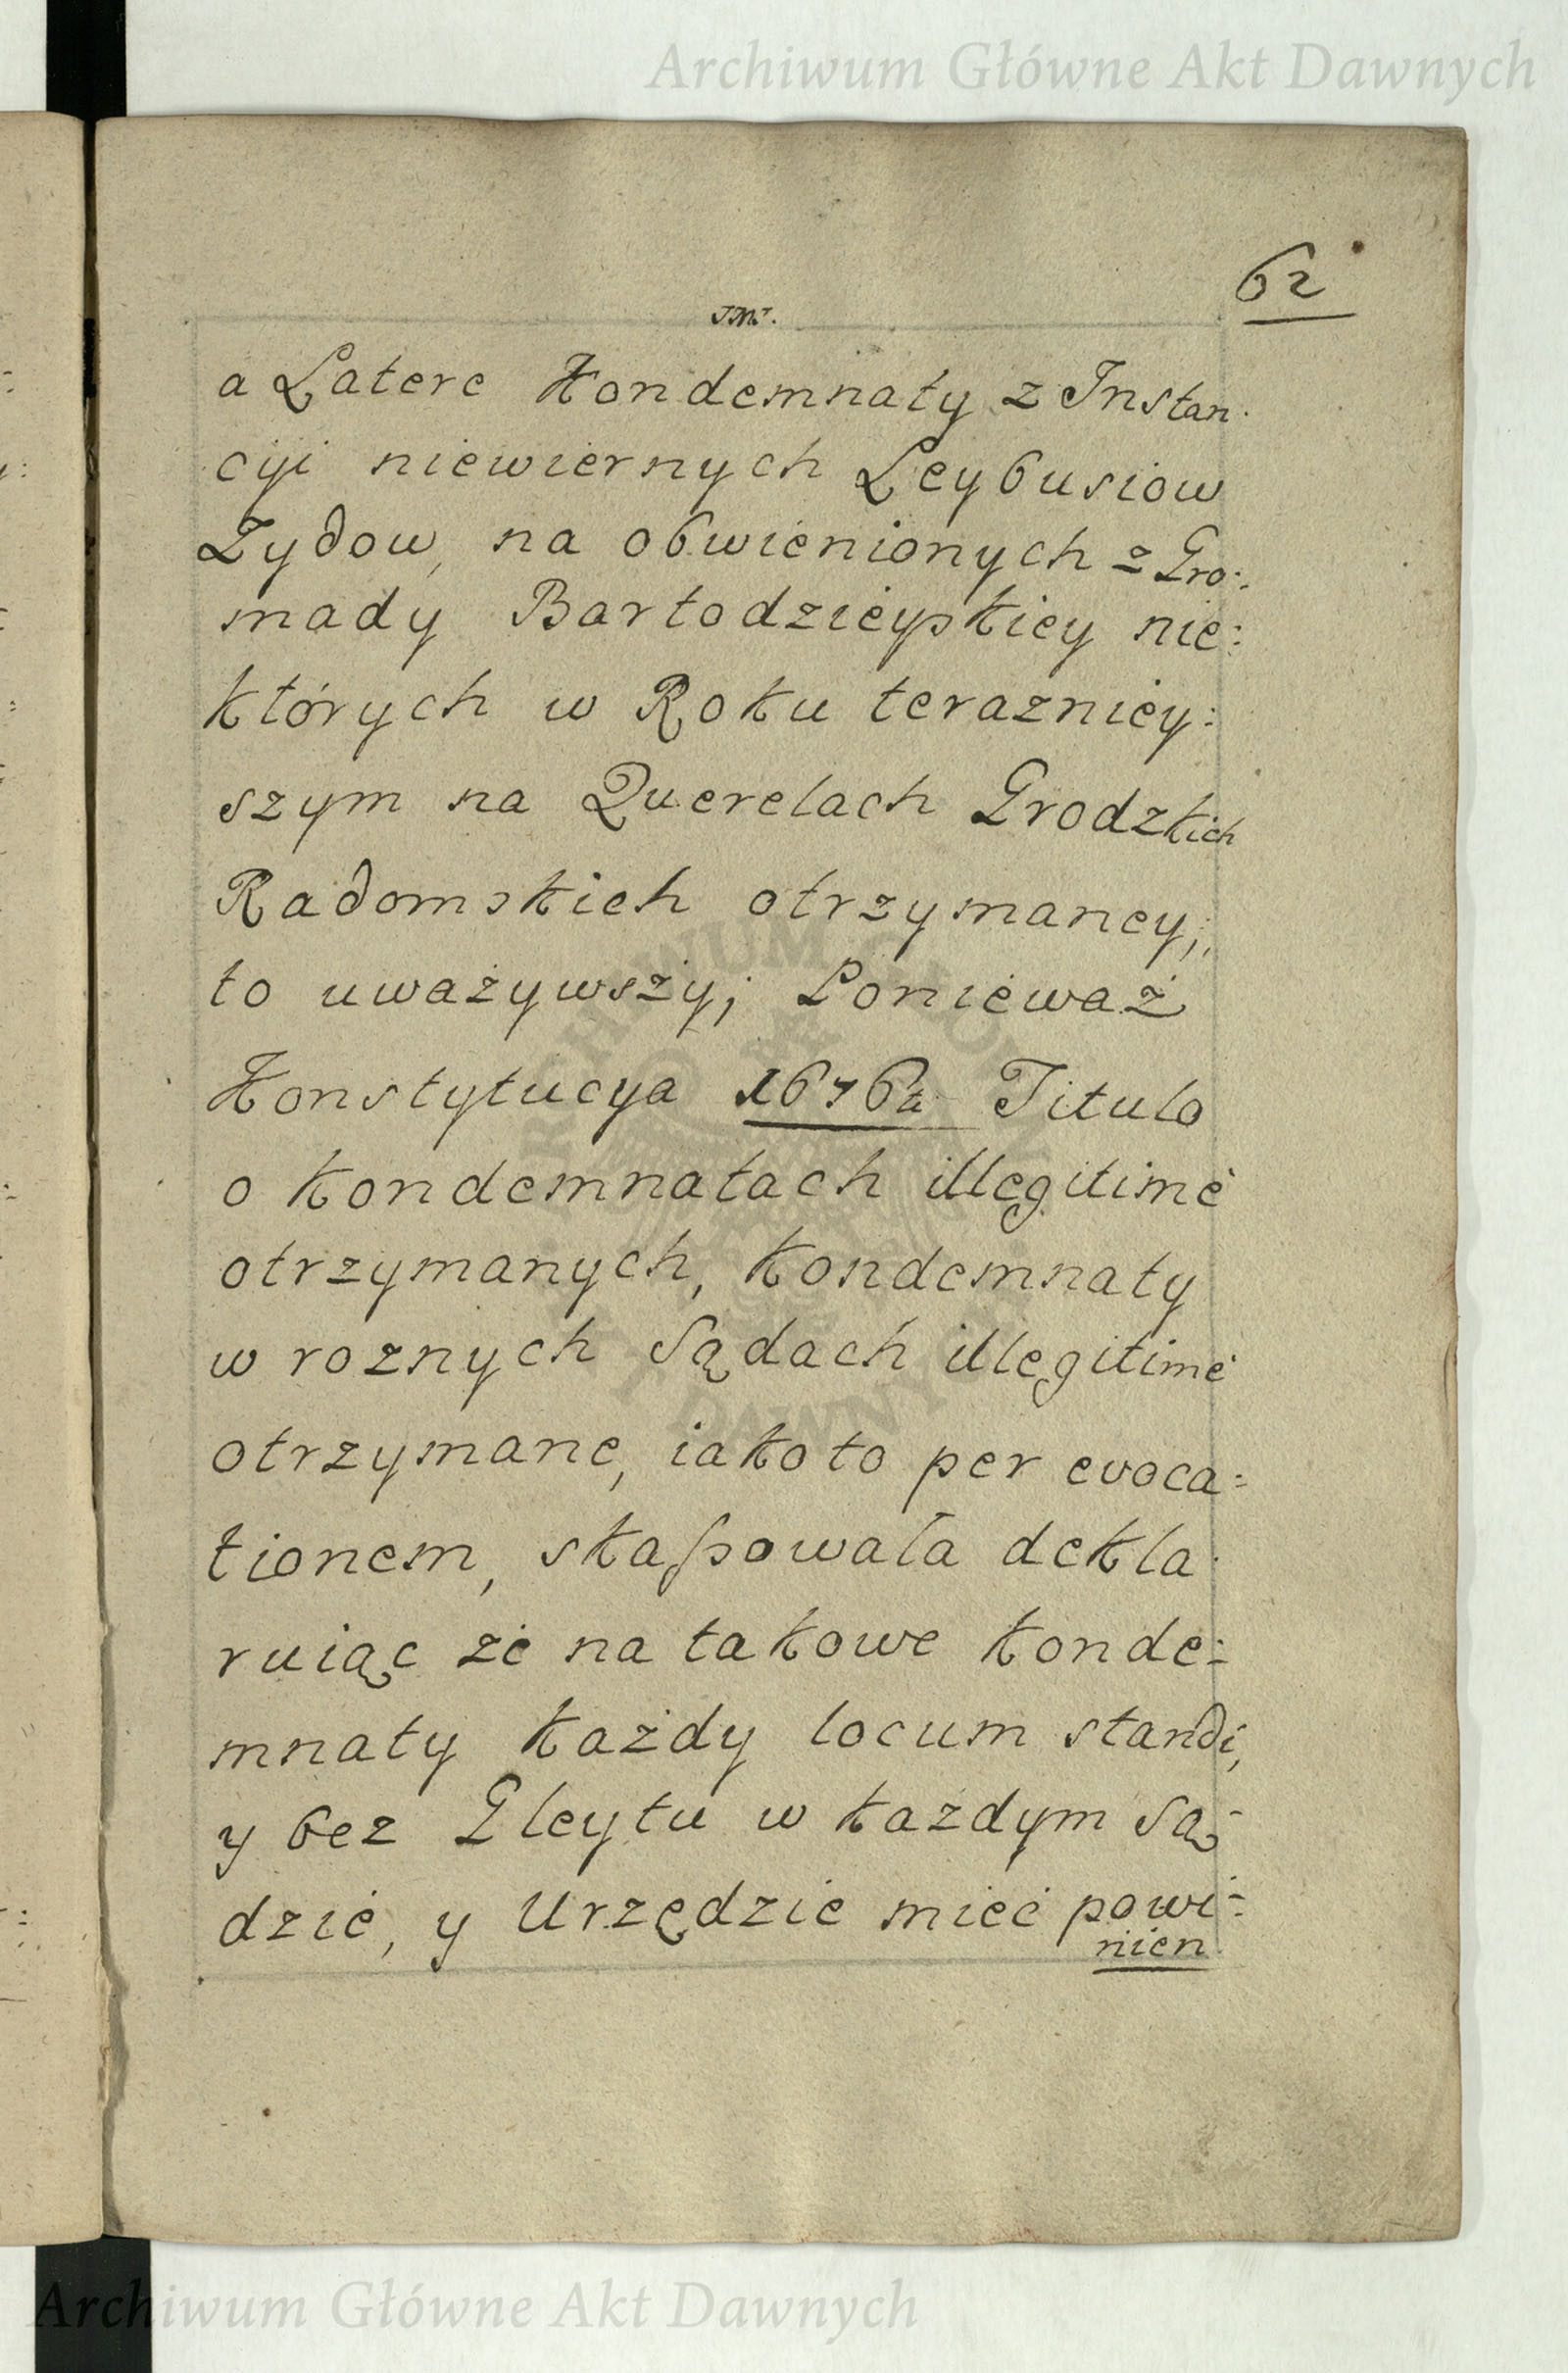 Archiwum Główne Akt Dawnych
62
a Latere Kondemnaty z Instan
cyi niewiernych Leybusiow
Zydow, na obwienionych z Gro:
mady Bartodzieyskiey nie:
których w Roku terazniey:
szym na Querelach Grodzkich
Radomskich otrzymaney,
to uważywszy; Ponieważ
Konstytucya 1676ta Titulo
o kondemnatach illegitimè
otrzymanych, kondemnaty
w roznych Sądach illegitimè
otrzymane, iako to per evoca=
tionem, skassowała dekla
ruiąc że na takowe konde=
mnaty każdy locum standi,
y bez Gleytu w każdym Są=
dzie, y Urzędzie mieć powi=
nien
Archiwum Główne Akt Dawnych